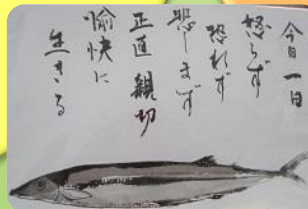 今日一日
怒らず
恐れず
悲しまず
正直 親切
愉快に
生きる